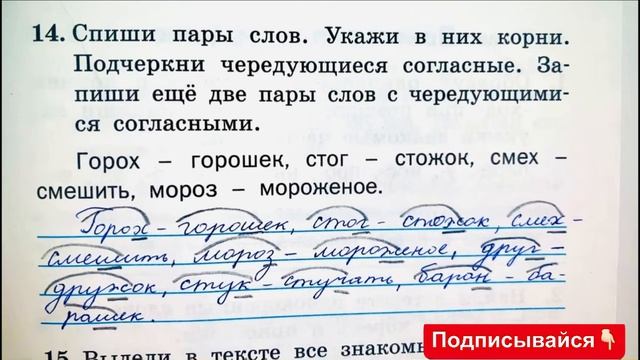 14. Спиши пары слов. Укажи в них корни.
Подчеркни чередующиеся согласные. За-
пиши ещё две пары слов с чередующими-
ся согласными.
Горох – горошек, стог – стожок, смех –
смешить, мороз – мороженое.
Горох - горошек, стог - стожок, смех -
смешить, мороз - мороженое, друг -
дружок, стук - стучать, баран - ба-
рашек.
Подписывайся
15. Выдели в тексте все знакомы